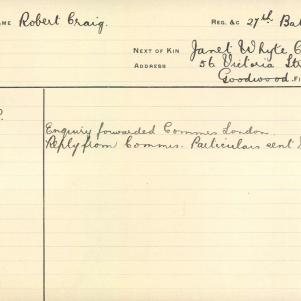 NAME Robert Craig. REG. &C 27th Bat
NEXT OF KIN Janet Whyte C
ADDRESS 56 Victoria Str
Goodwood. Fi
Enquiry forwarded Commrs London.
Reply from Commrs. Particulars sent